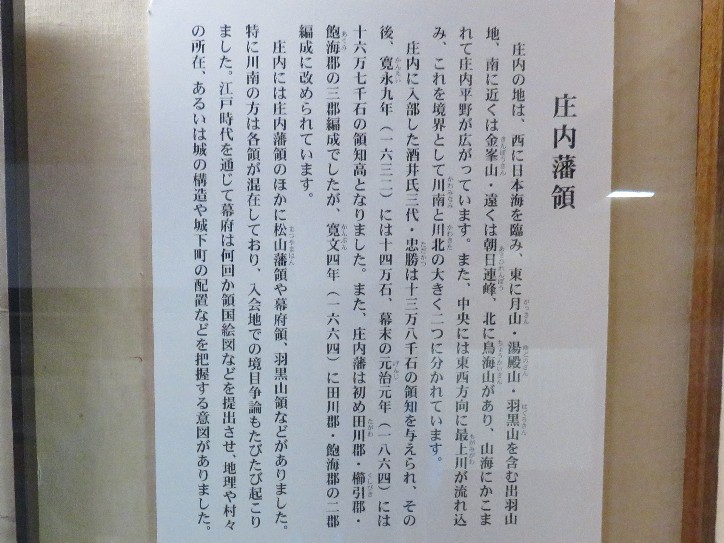 庄内藩領
庄内の地は、西に日本海を臨み、東に月山・湯殿山・羽黒山を含む出羽山
地、南に近くは金峯山・遠くは朝日連峰、北に鳥海山があり、山海にかこま
れて庄内平野が広がっています。また、中央には東西方向に最上川が流れ込
み、これを境界として川南と川北の大きく二つに分かれています。
庄内に入部した酒井氏三代・忠勝は十三万八千石の領知を与えられ、その
後、寛永九年（一六三二）には十四万石、幕末の元治元年（一八六四）には
十六万七千石の領知高となりました。また、庄内藩は初め田川郡・櫛引郡・
飽海郡の三郡編成でしたが、寛文四年（一六六四）に田川郡・飽海郡の二郡
編成に改められています。
庄内には庄内藩領のほかに松山藩領や幕府領、羽黒山領などがありました。
特に川南の方は各領が混在しており、入会地での境目争論もたびたび起こり
ました。江戸時代を通じて幕府は何回か領国絵図などを提出させ、地理や村々
の所在、あるいは城の構造や城下町の配置などを把握する意図がありました。